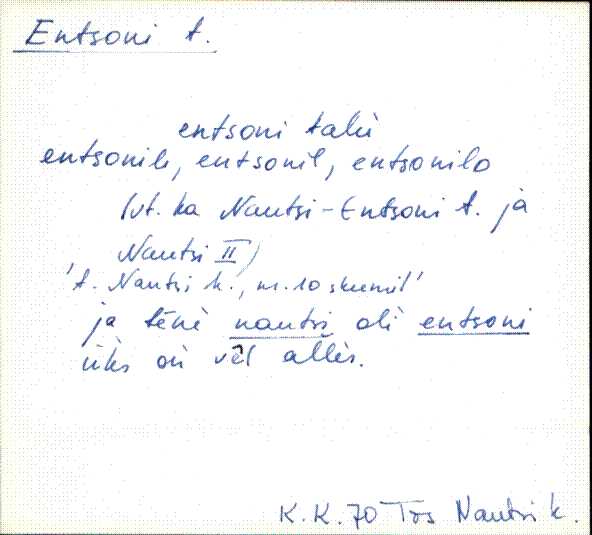 Entsoni t.
entsoni talù
entsonilɛ, entsonil, entsonilo
(vt. ka Nautsi-Entsoni t. ja
Nautsi II)
't. Nautsi k., m. 10 skeemil'
ja tēnè nautsi oli entsoni
üks oń vēl allès.
K.K. 70 Tõs Nautsi k.